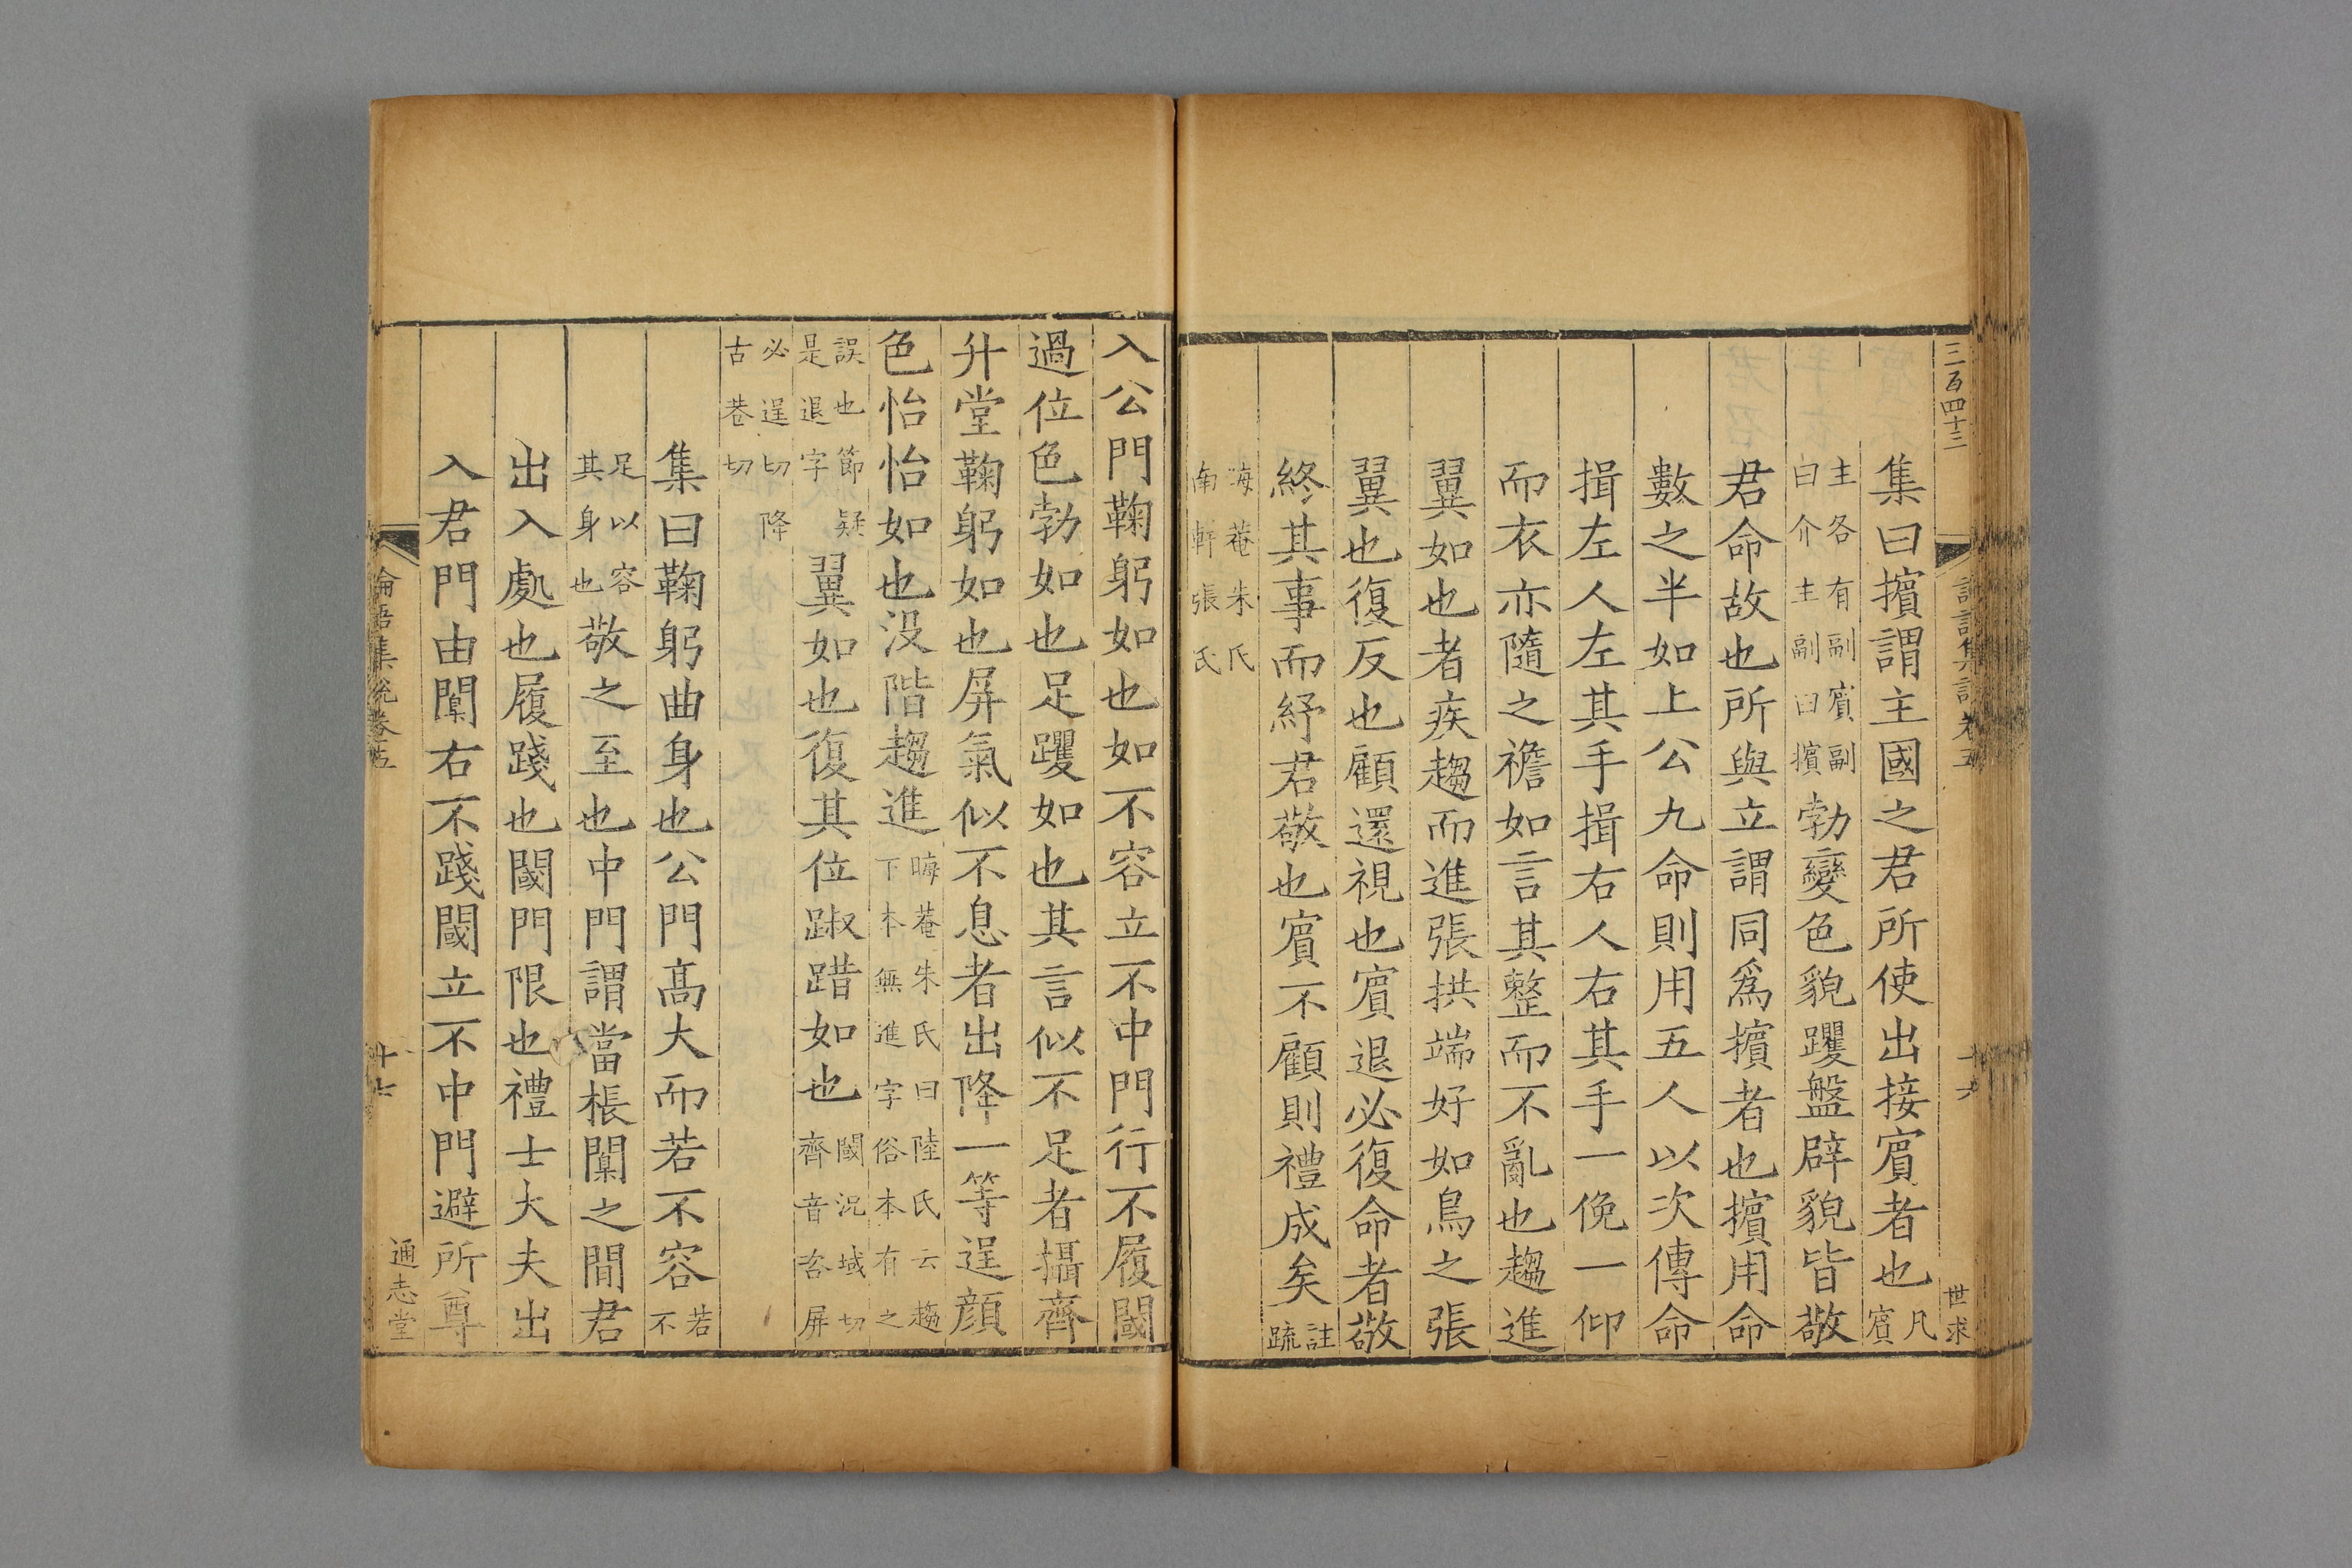 三百四十三
世求
集曰擯謂主國之君所使出接賓者也凡賓
主各有副賓副曰介主副曰擯勃變色貌躩盤辟貌皆敬
君命故也所與立謂同爲擯者也擯用命
數之半如上公九命則用五人以次傳命
揖左人左其手揖右人右其手一俛一仰
而衣亦隨之襜如言其整而不亂也趨進
翼如也者疾趨而進張拱端好如鳥之張
翼也復反也顧還視也賓退必復命者敬
終其事而紓君敬也賓不顧則禮成矣註疏
晦菴朱氏南軒張氏
入公門鞠躬如也如不容立不中門行不履閾
過位色勃如也足躩如也其言似不足者攝齊
升堂鞠躬如也屏氣似不息者出降一等逞顔
色怡怡如也没階趨進晦菴朱氏曰陸氏云趨下本無進字俗本有之
誤也節疑是退字翼如也復其位踧踖如也閾況域切齊音咨屏
必逞切降古巷切
集曰鞠躬曲身也公門高大而若不容若不
足以容其身也敬之至也中門謂當棖闑之間君
出入處也履踐也閾門限也禮士大夫出
入君門由闑右不踐閾立不中門避所尊
論語集說卷五
十七
通志堂